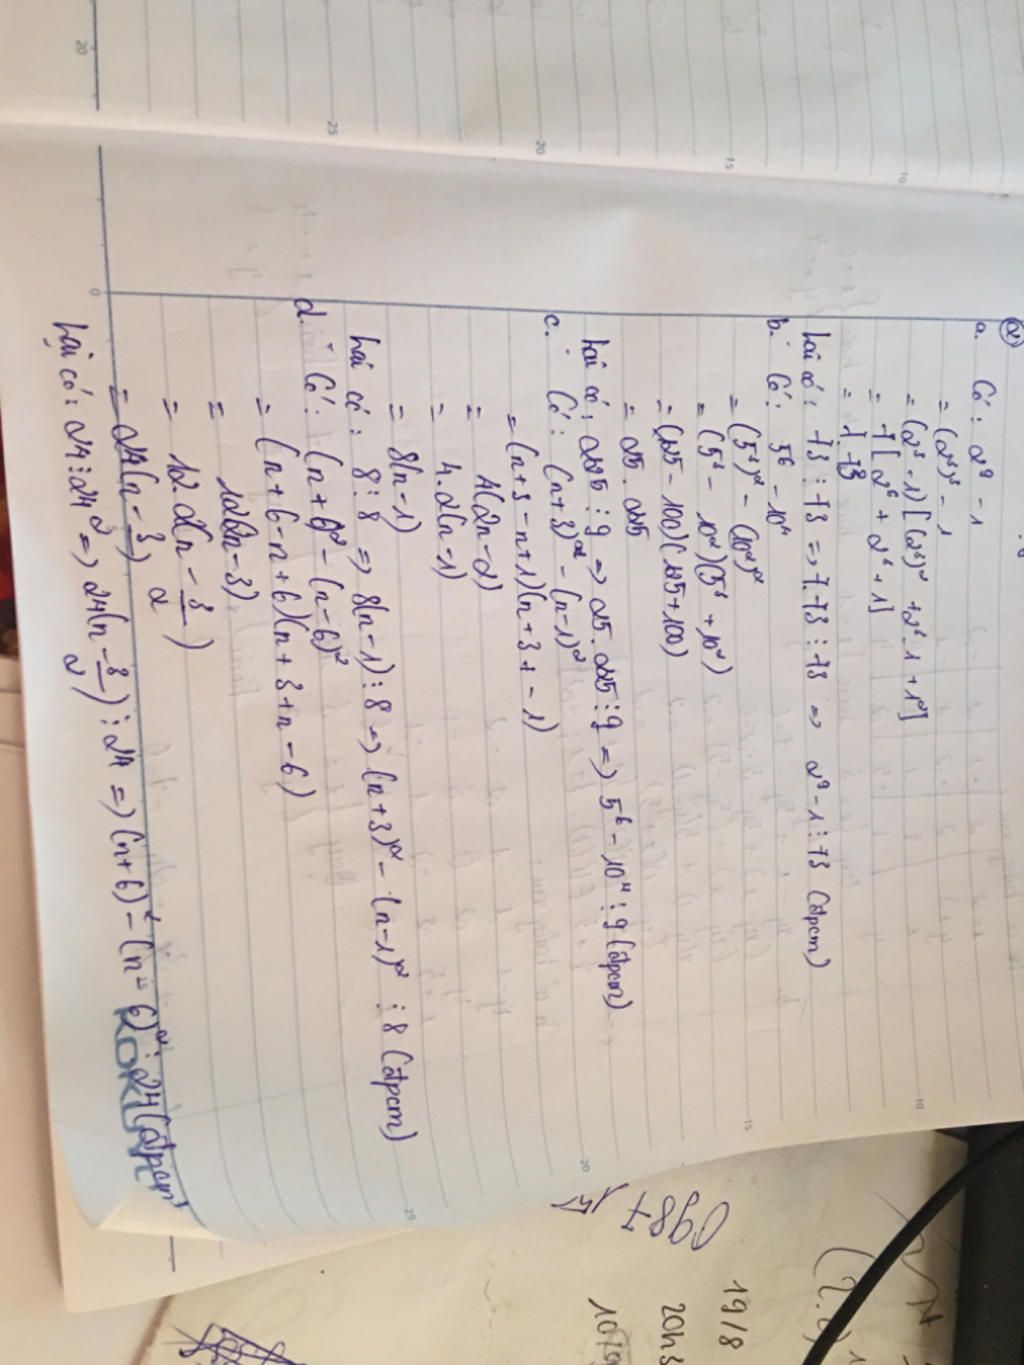 2
a. Có: 2⁹ - 1
= (2³)³ - 1
= (2³ - 1)[(2³)² + 2³.1 + 1²]
= 7[2⁶ + 2³ + 1]
= 7.73
Lại có: 73 ⋮ 73 => 7.73 ⋮ 73 => 2⁹ - 1 ⋮ 73 (đpcm)
b. Có: 5⁶ - 10⁴
= (5³)² - (10²)²
= (5³ - 10²)(5³ + 10²)
= (125 - 100)(125 + 100)
= 25 . 225
Lại có: 225 ⋮ 9 => 25 . 225 ⋮ 9 => 5⁶ - 10⁴ ⋮ 9 (đpcm)
c. Có: (n+3)² - (n-1)²
= (n+3-n+1)(n+3+-1)
= 4(2n-2)
= 4.2(n-1)
= 8(n-1)
Lại có: 8 ⋮ 8 => 8(n-1) ⋮ 8 => (n+3)² - (n-1)² ⋮ 8 (đpcm)
d. Có: (n+6)² - (n-6)²
= (n+6-n+6)(n+3+n-6)
= 12(2n-3)
= 12.2(n - 3/2)
= 24(n - 3/2)
Lại có: 24 ⋮ 24 => 24(n - 3/2) ⋮ 24 => (n+6)² - (n-6)² ⋮ 24 (đpcm)
0987
19/8
20h3